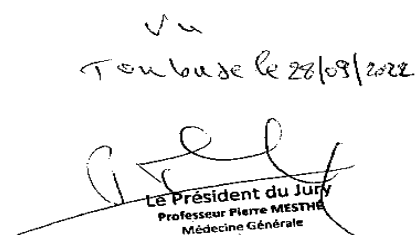 Vu
Toulouse le 28/09/2022
Le Président du Jury
Professeur Pierre MESTHÉ
Médecine Générale